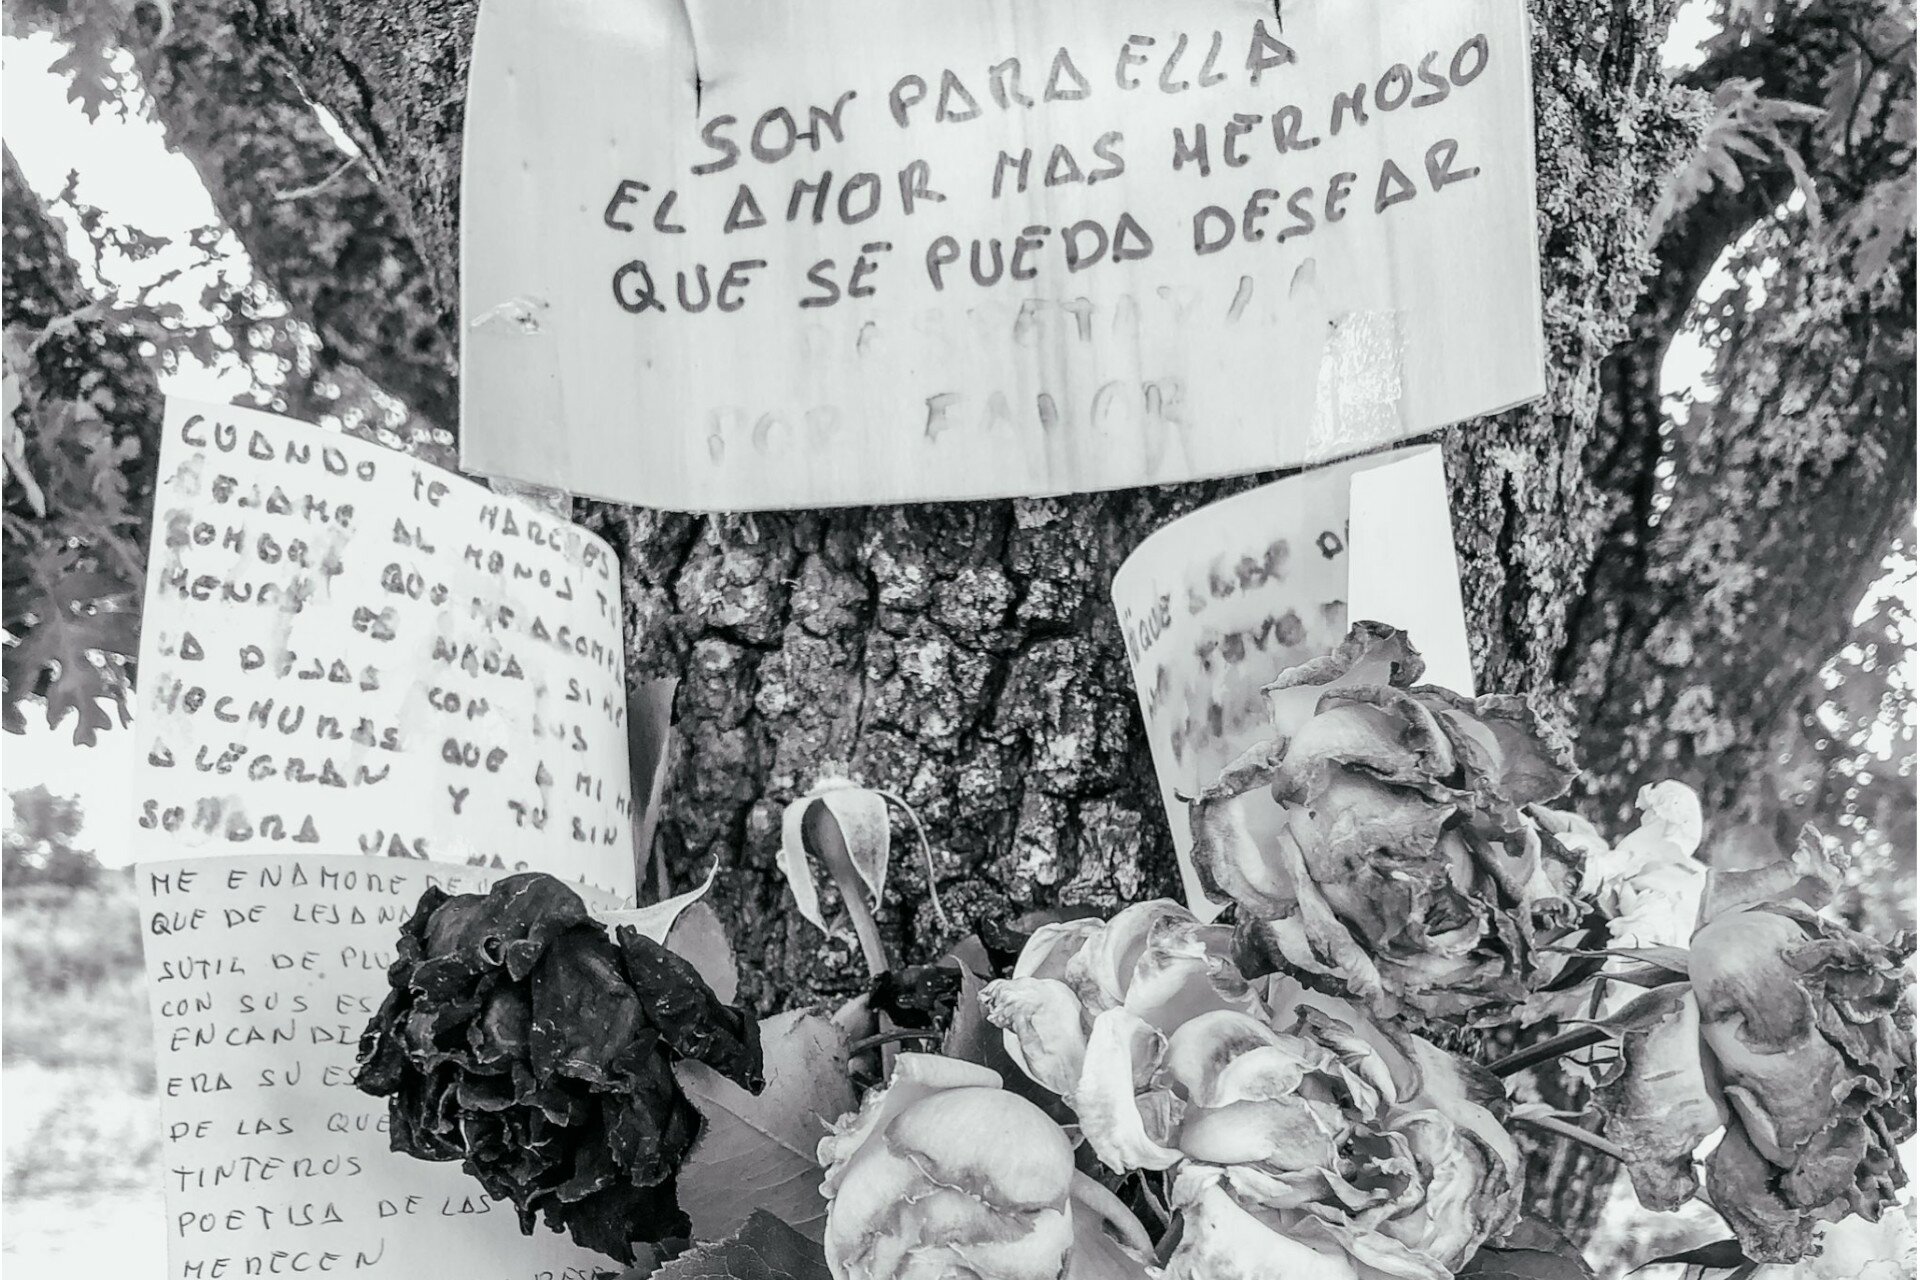 SON PARA ELLA
EL AMOR MAS HERMOSO
QUE SE PUEDA DESEAR
POR FAVOR
CUANDO TE MARCHES
DEJAME AL MONOS TU
SOMBRA QUE ME ACOMPA
MENOS ES NADA, SI ME
LA DEJAS CON SUS
HOCHURAS QUE A MI ME
ALEGRAN Y TU SIN
SOMBRA VAS MAS
ME ENAMORE DE
QUE DE LEJANA
SUTIL DE PLU
CON SUS ES
ENCANDI
ERA SU ES
DE LAS QUE
TINTEROS
POETISA DE LAS
MERECEN
QUE
TUVO